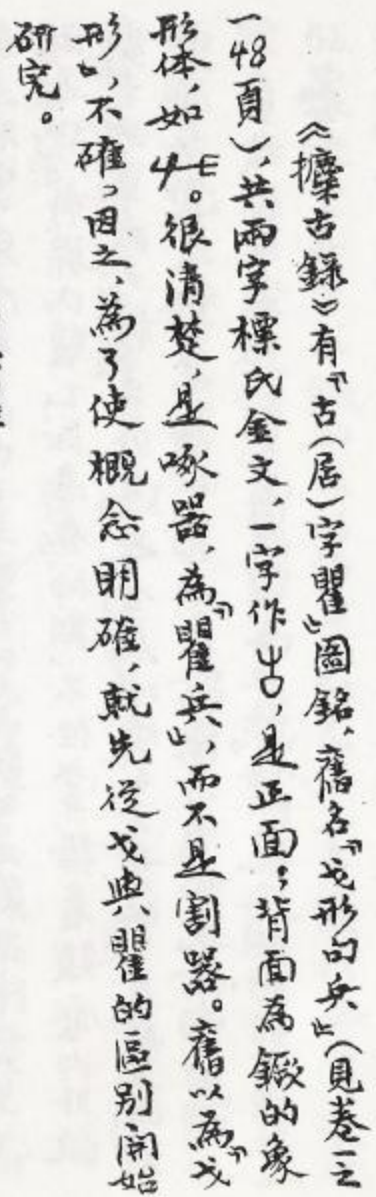 《攈古錄》有『古(居)字瞿』圖銘,舊名『戈形句兵』(見卷一之
一48頁),共兩字標氏金文,一字作古,是正面。背面為鐝的象
形体,如。很清楚,是啄器,為『瞿兵』,而不是割器。舊以為『戈
形』,不確,因之,為了使概念明確,就先從戈與瞿的區別開始
研究。